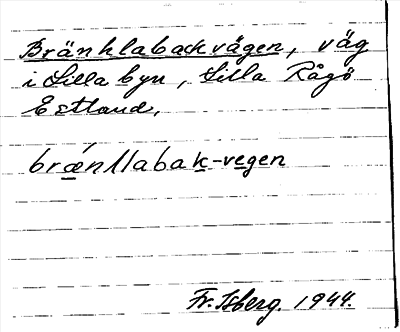 Bränklabackvägen, väg
i Lilla byn, Lilla Rågö
Estland.
brǽnllabak-vegen
Fr. Isberg. 1944.